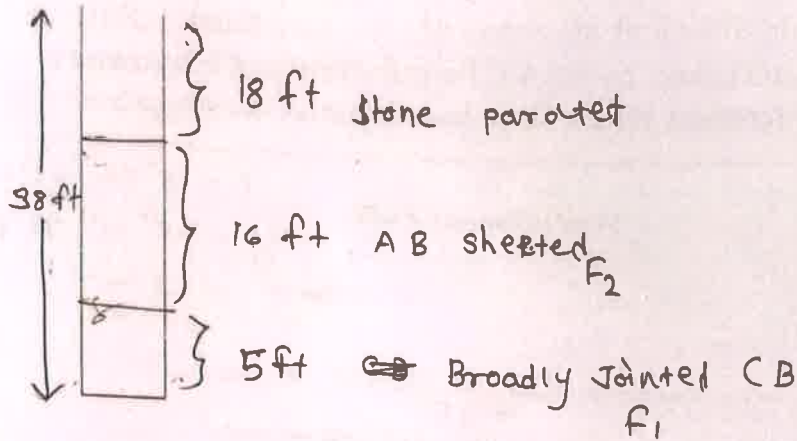 18 ft Stone paratet
38 ft
16 ft A B sheeted F2
5 ft Broadly Jointed C B
F1